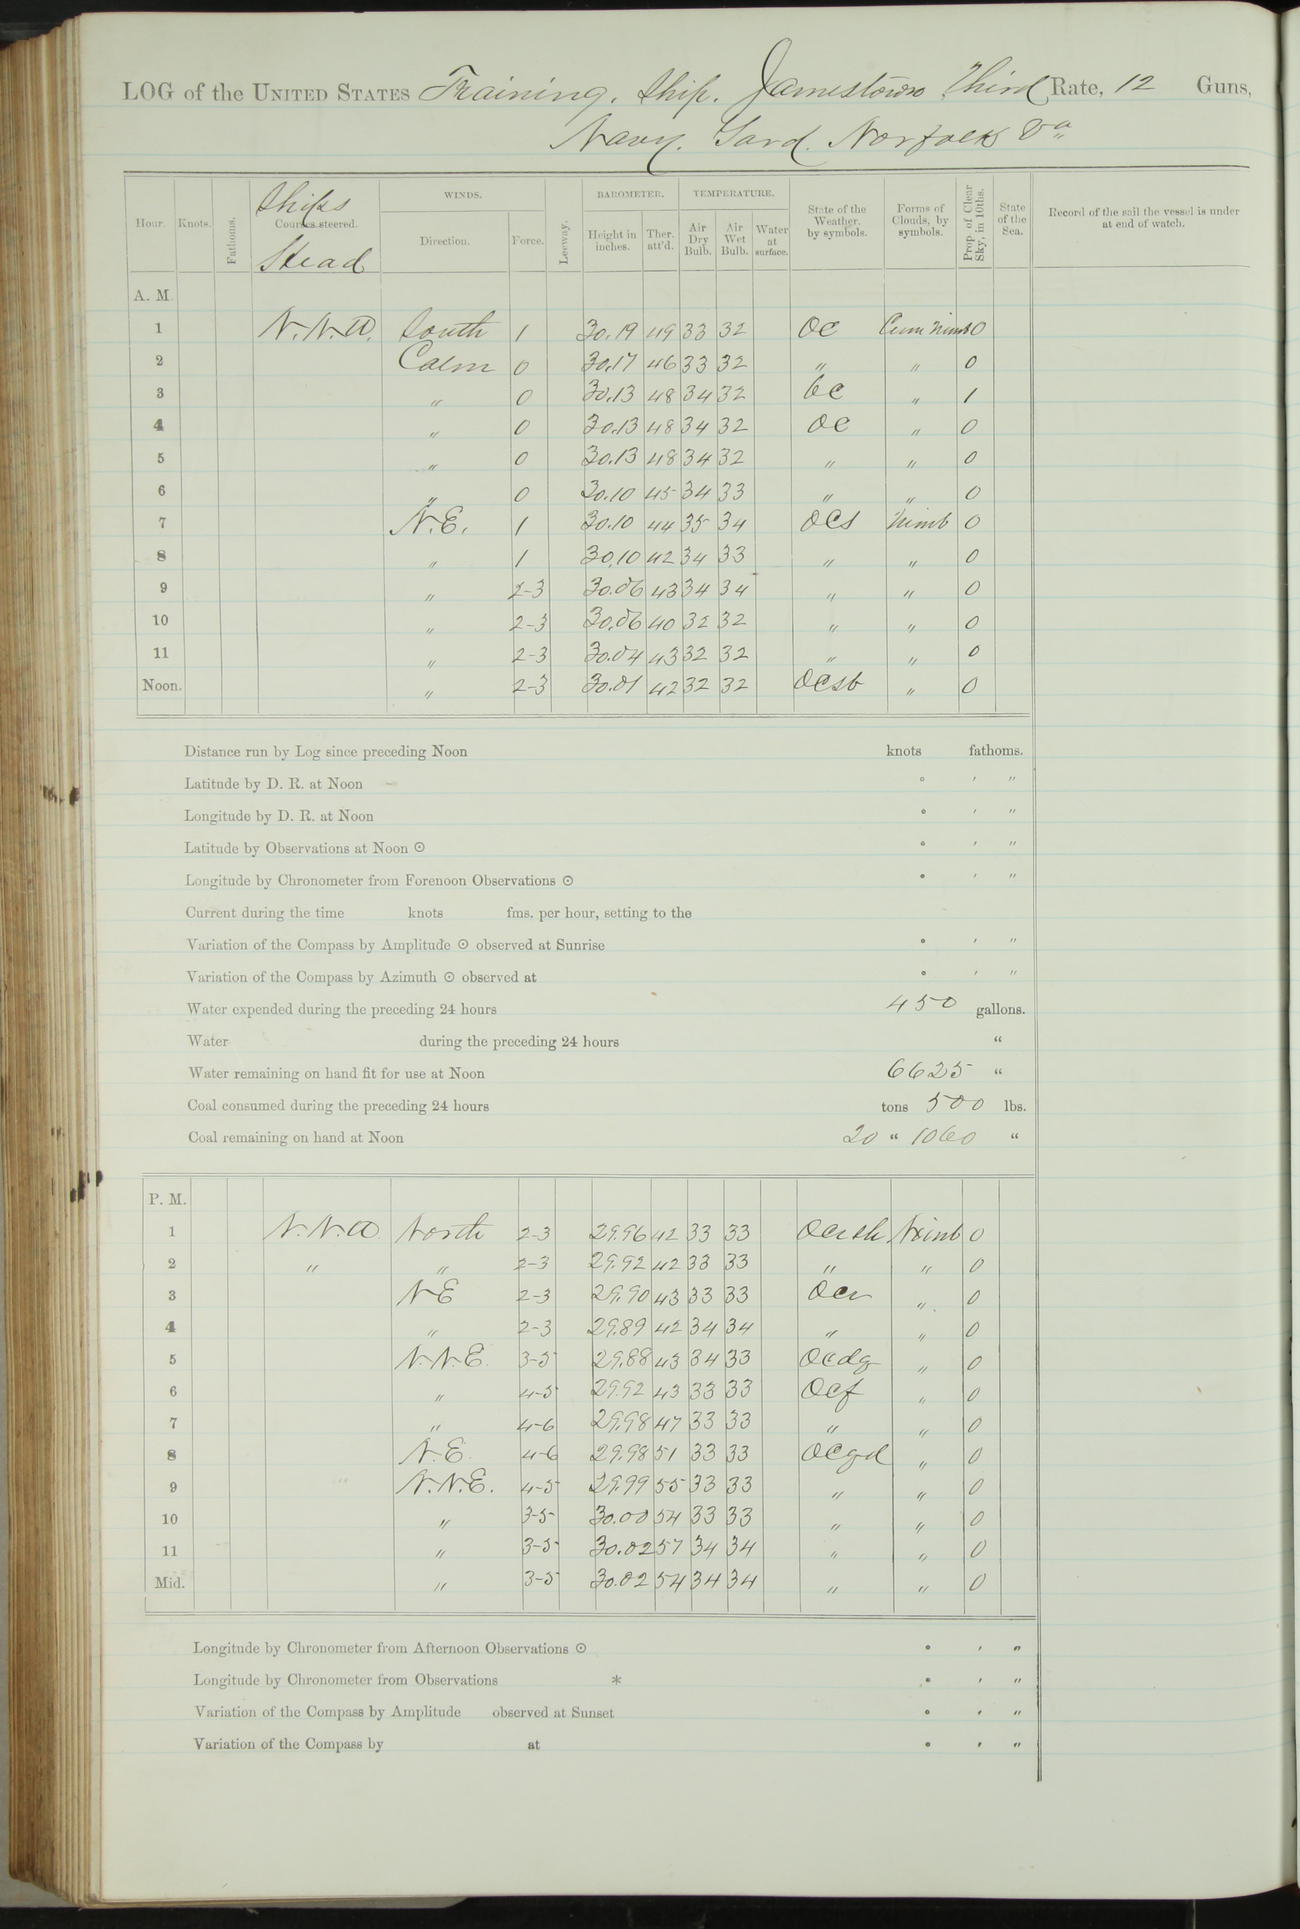 LOG of the UNITED STATES Training Ship Jamestown Third Rate, 12 Guns,
Navy Yard Norfolk Va
Hour. Knots. Fathoms. Ships Courses steered. Head WINDS. Direction. Force. Leeway. BAROMETER. Height in inches. Ther. att'd. TEMPERATURE. Air Dry Bulb. Air Wet Bulb. Water at surface. State of the Weather, by symbols. Forms of Clouds, by symbols. Prop. of Clear Sky, in 10ths. State of the Sea. Record of the sail the vessel is under at end of watch.
A. M.
1 N.N.W. South 1 30.19 49 33 32 OC Cum Nimb 0
2 Calm 0 30.17 46 33 32 " " 0
3 " 0 30.13 48 34 32 bc " 1
4 " 0 30.13 48 34 32 OC " 0
5 " 0 30.13 48 34 32 " " 0
6 " 0 30.10 45 34 33 " " 0
7 N.E. 1 30.10 44 35 34 OCS Nimb 0
8 " 1 30.10 42 34 33 " " 0
9 " 2-3 30.06 43 34 34 " " 0
10 " 2-3 30.06 40 32 32 " " 0
11 " 2-3 30.04 43 32 32 " " 0
Noon. " 2-3 30.01 42 32 32 OCSb " 0
Distance run by Log since preceding Noon knots fathoms.
Latitude by D. R. at Noon ° ' "
Longitude by D. R. at Noon ° ' "
Latitude by Observations at Noon ⊙ ° ' "
Longitude by Chronometer from Forenoon Observations ⊙ ° ' "
Current during the time knots fms. per hour, setting to the
Variation of the Compass by Amplitude ⊙ observed at Sunrise ° ' "
Variation of the Compass by Azimuth ⊙ observed at ° ' "
Water expended during the preceding 24 hours 450 gallons.
Water during the preceding 24 hours "
Water remaining on hand fit for use at Noon 6625 "
Coal consumed during the preceding 24 hours tons 500 lbs.
Coal remaining on hand at Noon 20 " 1060 "
P. M.
1 N.N.W North 2-3 29.96 42 33 33 Nimb 0
2 " " 2-3 29.92 42 33 33 " " 0
3 N E 2-3 29.90 43 33 33 Ocr " 0
4 " 2-3 29.89 42 34 34 " " 0
5 N.N.E. 3-5 29.88 43 34 33 Ocdq " 0
6 " 4-5 29.92 43 33 33 Ocf " 0
7 " 4-6 29.98 47 33 33 " " 0
8 N.E. 4-6 29.98 51 33 33 Ocgd " 0
9 N.N.E. 4-5 29.99 55 33 33 " " 0
10 " 3-5 30.00 54 33 33 " " 0
11 " 3-5 30.02 57 34 34 " " 0
Mid. " 3-5 30.02 54 34 34 " " 0
Longitude by Chronometer from Afternoon Observations ⊙ ° ' "
Longitude by Chronometer from Observations * ° ' "
Variation of the Compass by Amplitude observed at Sunset ° ' "
Variation of the Compass by at ° ' "